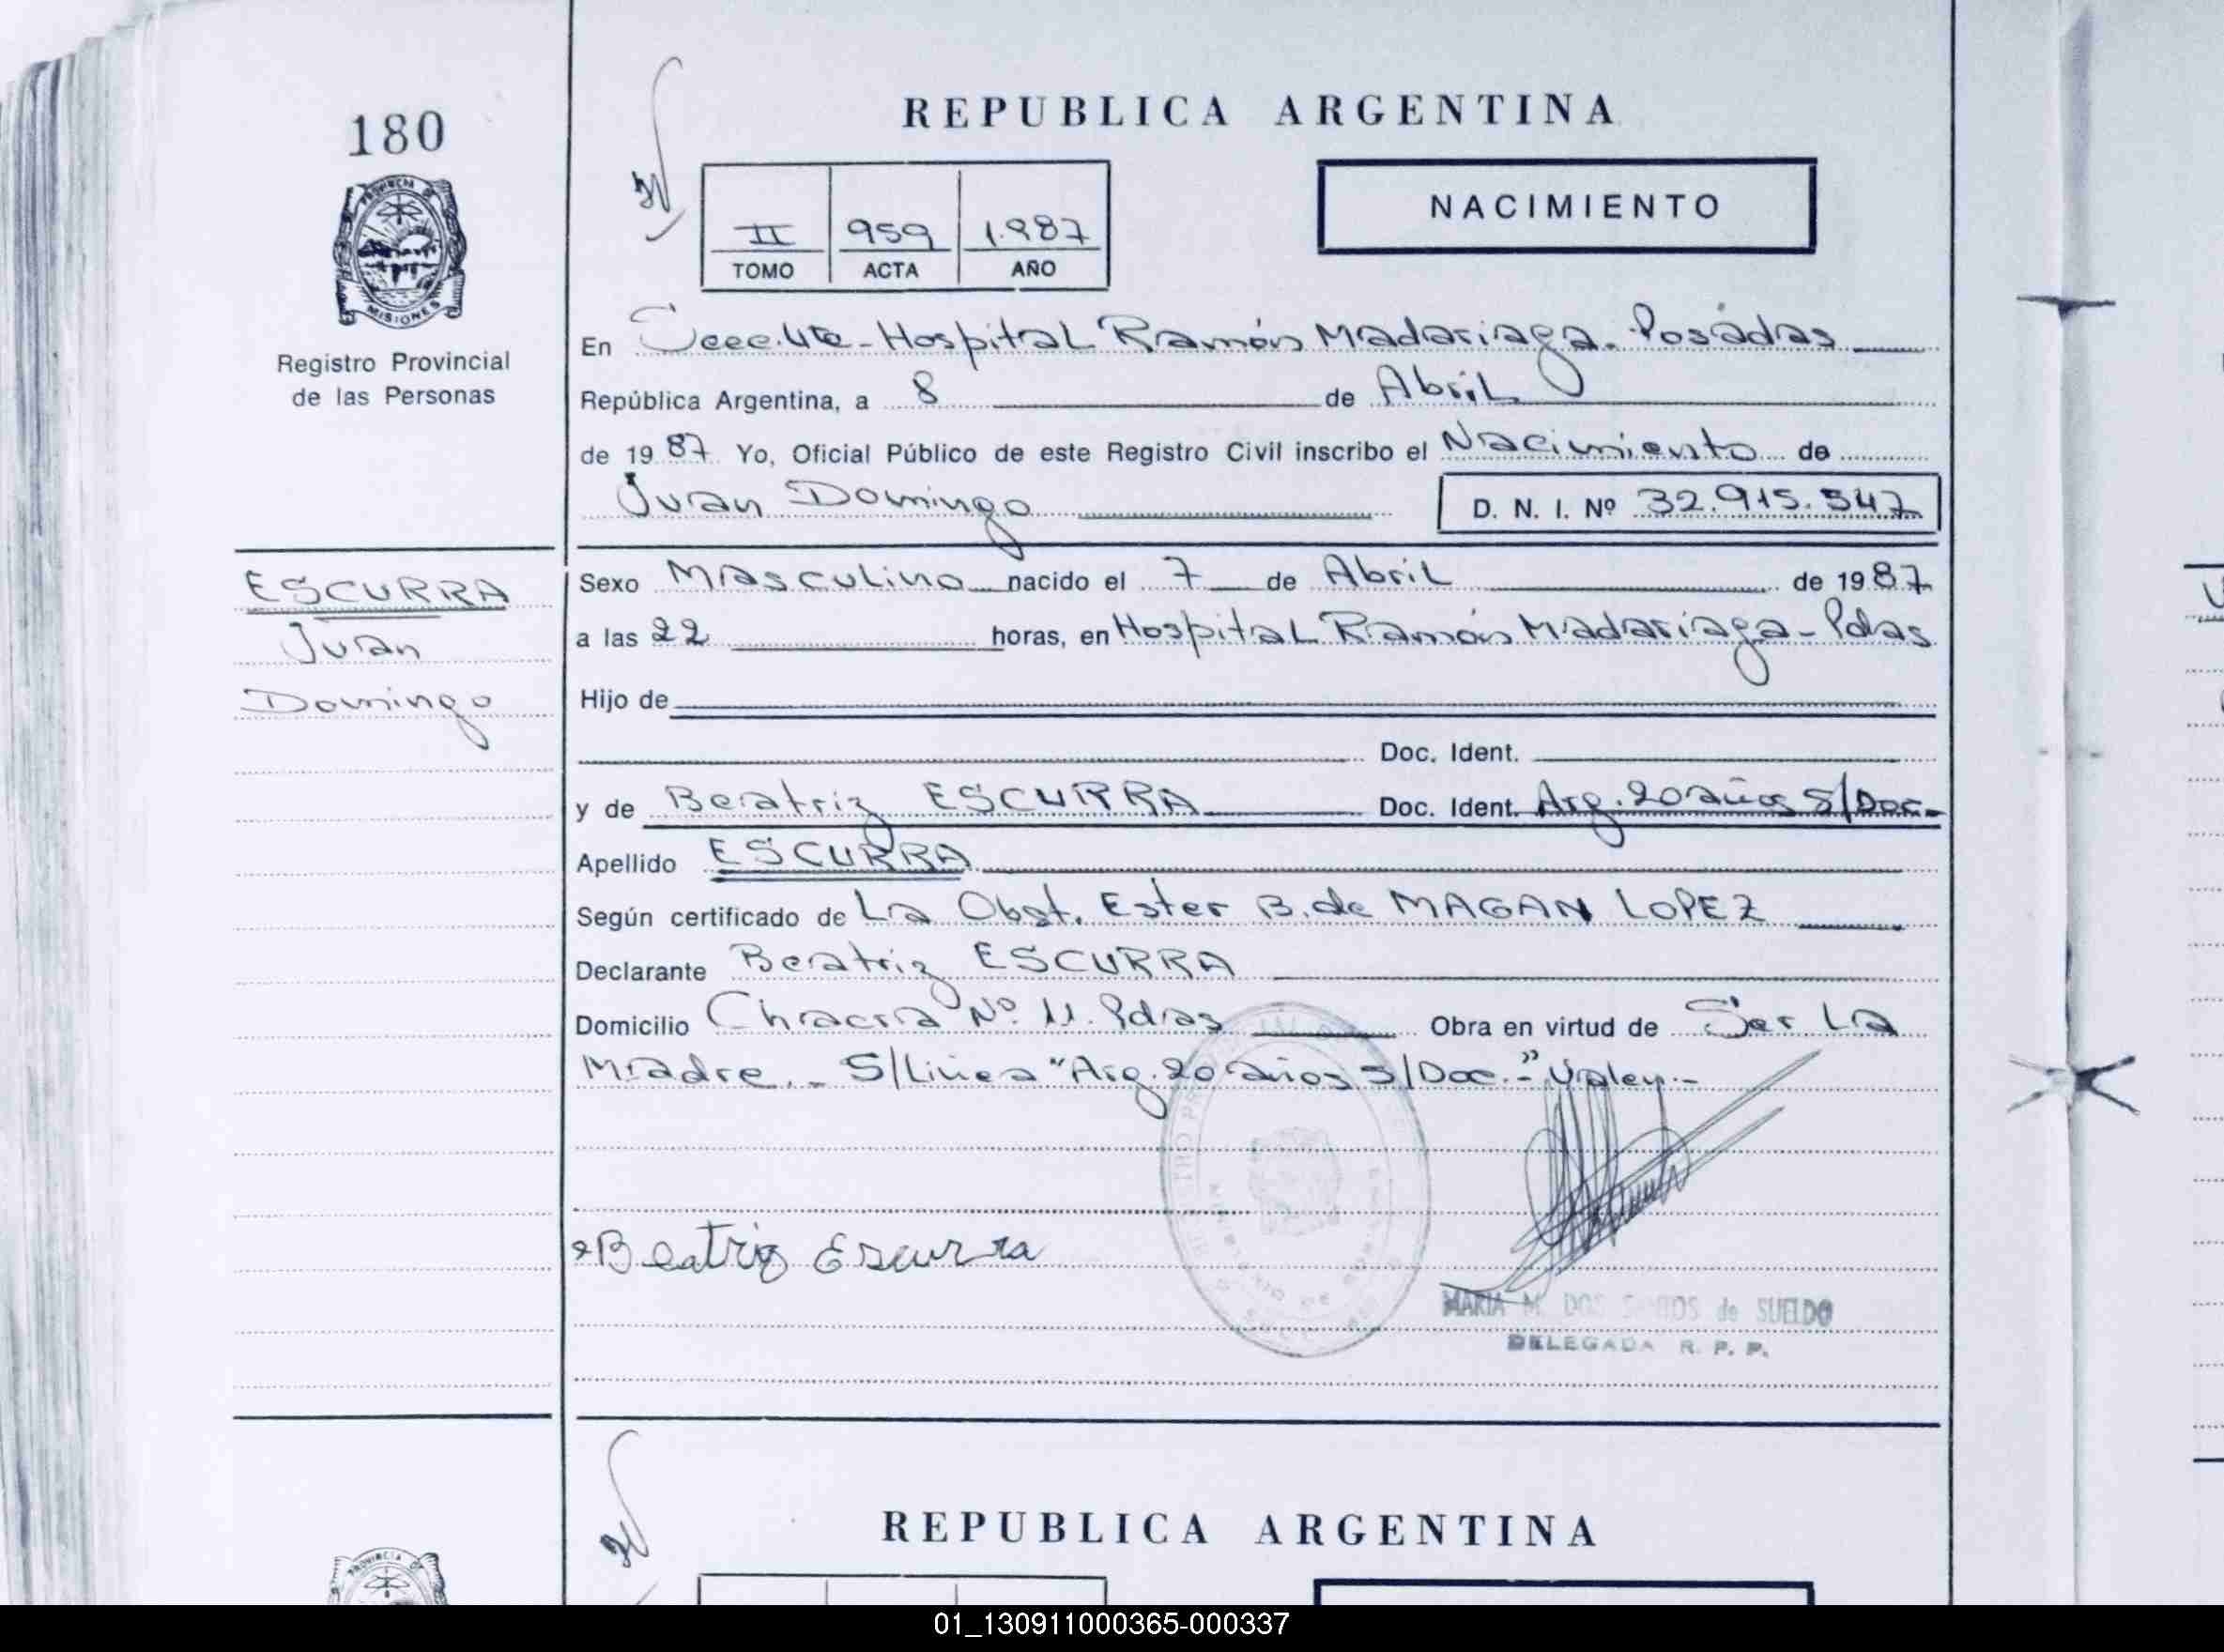 180
REPUBLICA ARGENTINA
NACIMIENTO
II 959 1.987
TOMO ACTA AÑO
PROVINCIA DE
MISIONES
Registro Provincial
de las Personas
En Hospital Ramón Madariaga. Posadas
República Argentina, a 8 de Abril
de 1987 Yo, Oficial Público de este Registro Civil inscribo el Nacimiento de
Juan Domingo D. N. I. Nº 32.915.547
ESCURRA
Juan
Domingo
Sexo Masculino nacido el 7 de Abril de 1987
a las 22 horas, en Hospital Ramón Madariaga - Pdas
Hijo de
Doc. Ident.
y de Beatriz ESCURRA Doc. Ident. Arg. 20 años S/Doc.-
Apellido ESCURRA
Según certificado de La Obst. Ester B. de MAGAN LOPEZ
Declarante Beatriz ESCURRA
Domicilio Chacra Nº 11. Pdas Obra en virtud de Ser La
Madre.- S/Linea "Arg. 20 años S/Doc.-" Valen.-
Beatriz Escurra
MARIA M. DOS SANTOS de SUELDO
DELEGADA R. P. P.
REPUBLICA ARGENTINA
PROVINCIA DE
01_130911000365-000337